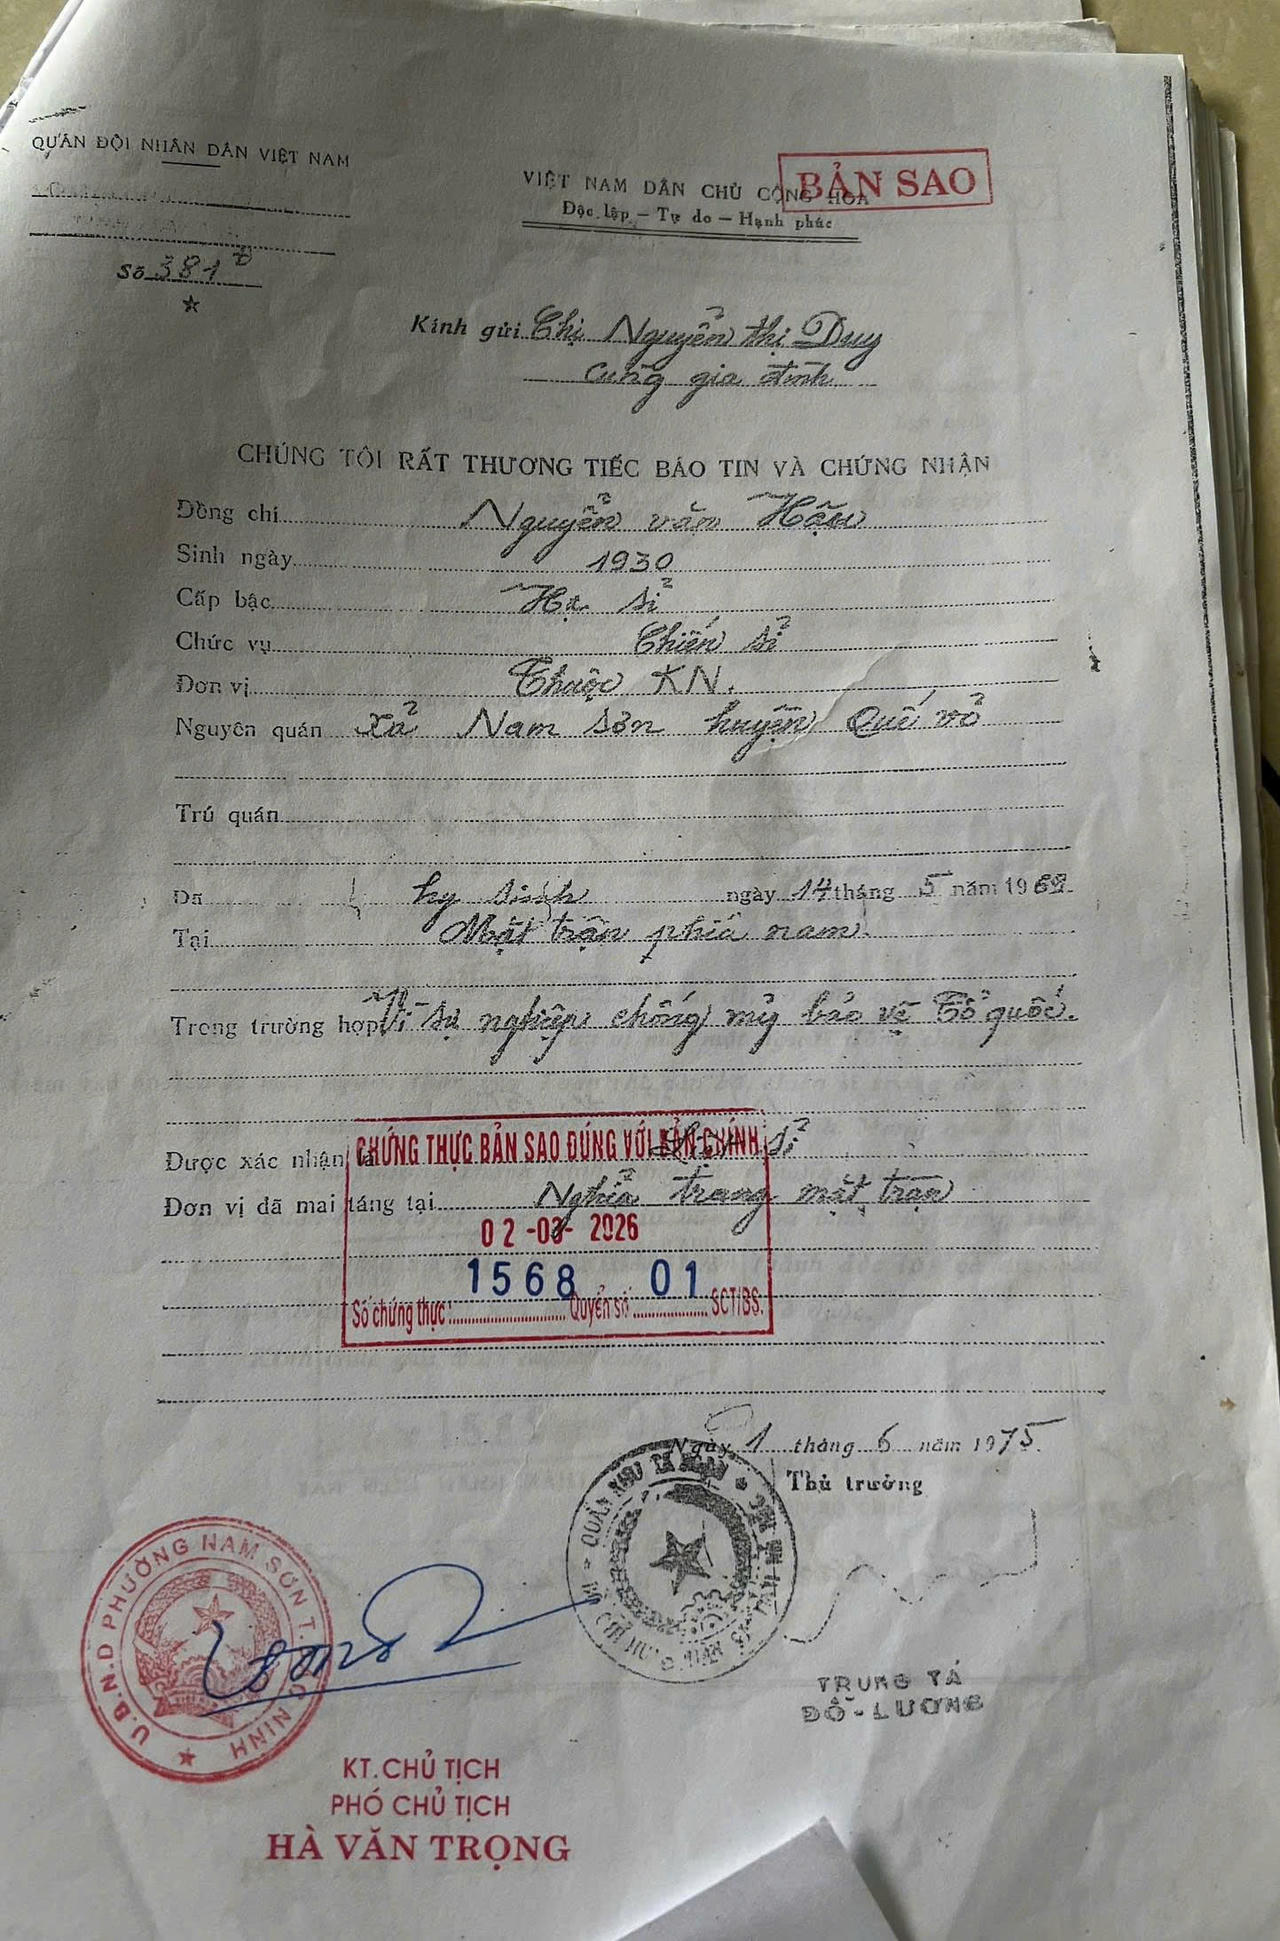 QUÂN ĐỘI NHÂN DÂN VIỆT NAM
VIỆT NAM DÂN CHỦ CỘNG HÒA
BẢN SAO
Độc lập – Tự do – Hạnh phúc
Số 381 Đ
Kính gửi Chị Nguyễn thị Duy
cùng gia đình
CHÚNG TÔI RẤT THƯƠNG TIẾC BÁO TIN VÀ CHỨNG NHẬN
Đồng chí Nguyễn văn Hậu
Sinh ngày 1930
Cấp bậc Hạ sĩ
Chức vụ Chiến sĩ
Đơn vị Thuộc KN.
Nguyên quán xã Nam Sơn huyện Quế võ
Trú quán
Đã hy sinh ngày 14 tháng 5 năm 1968
Tại Mặt trận phía nam.
Trong trường hợp Vì sự nghiệp chống mỹ bảo vệ Tổ quốc.
Được xác nhận là Liệt sĩ
CHỨNG THỰC BẢN SAO ĐÚNG VỚI BẢN CHÍNH
Đơn vị đã mai táng tại Nghĩa trang mặt trận
02 -03- 2026
Số chứng thực: 1568 Quyển số 01 SCT/BS.
Ngày 1 tháng 6 năm 1975
Thủ trưởng
TRUNG TÁ
ĐỖ - LƯƠNG
U.B.N.D PHƯỜNG NAM SƠN T. BẮC NINH
KT. CHỦ TỊCH
PHÓ CHỦ TỊCH
HÀ VĂN TRỌNG